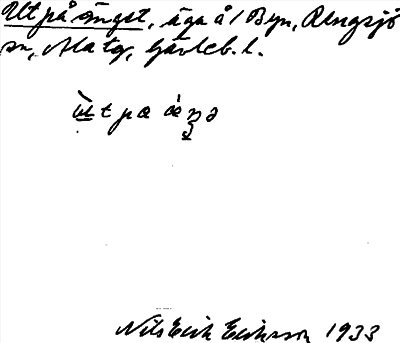 Ut på änget, äga å 1 Byn, Rengsjö
sn, Ala tg, Gävleb. l.
ùt pa äŋə
Nils Erik Eriksson 1933